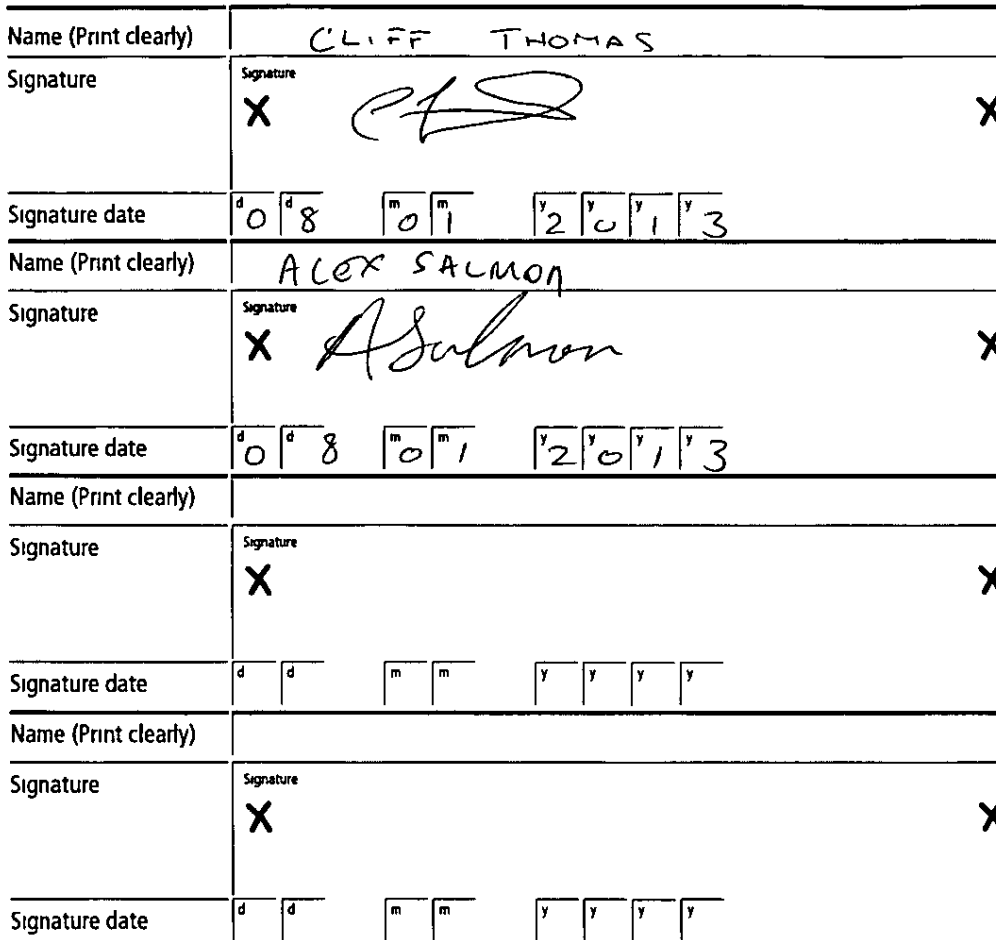 Name (Print clearly) CLIFF THOMAS
Signature Signature
X X
Signature date d0 d8 m0 m1 y2 y0 y1 y3
Name (Print clearly) ALEX SALMON
Signature Signature
X ASalmon X
Signature date d0 d8 m0 m1 y2 y0 y1 y3
Name (Print clearly)
Signature Signature
X X
Signature date d d m m y y y y
Name (Print clearly)
Signature Signature
X X
Signature date d d m m y y y y